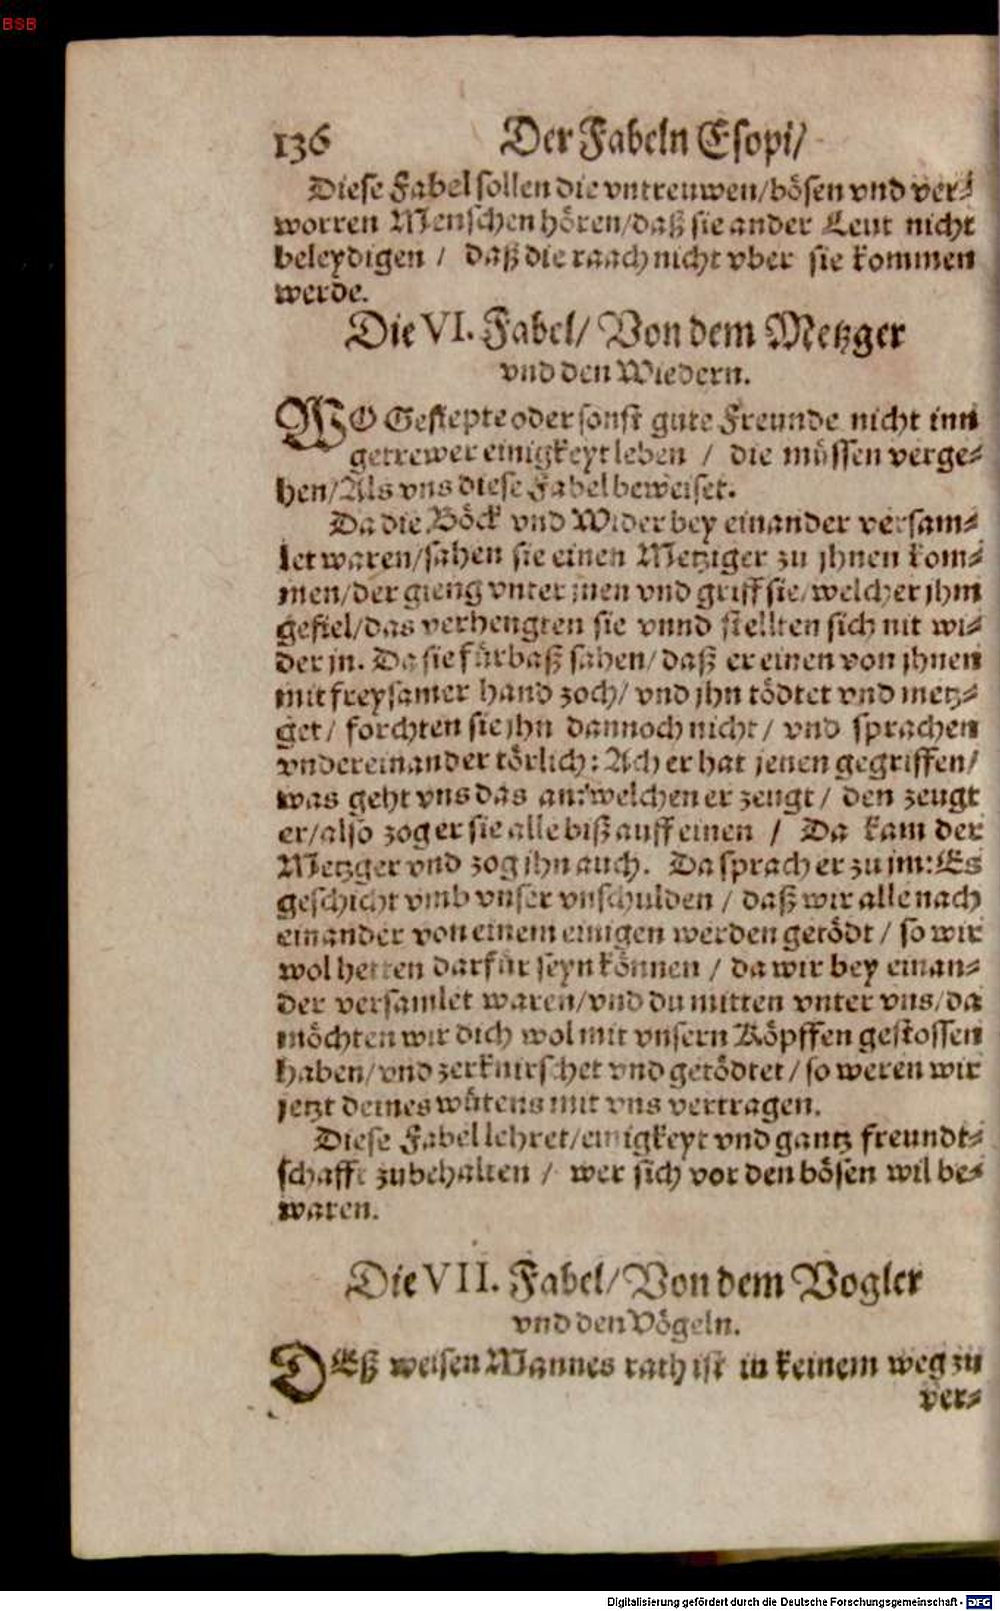 BSB
136 Der Fabeln Esopi/
Diese Fabel sollen die vntreuwen/bösen vnd ver-
worren Menschen hören/daß sie ander Leut nicht
beleydigen / daß die raach nicht vber sie kommen
werde.
Die VI. Fabel/ Von dem Metzger
vnd den Wiedern.
WO Gesiepte oder sonst gute Freunde nicht inn
getrewer einigkeyt leben / die müssen verge-
hen/Als vns diese Fabel beweiset.
Da die Böck vnd Wider bey einander versam-
let waren/sahen sie einen Metziger zu jhnen kom-
men/der gieng vnter jnen vnd griff sie/welcher jhm
gefiel/das verhengten sie vnnd stellten sich nit wi-
der jn. Da sie fürbaß sahen/daß er einen von jhnen
mit freysamer hand zoch/ vnd jhn tödtet vnd metz-
get/ forchten sie jhn dannoch nicht/ vnd sprachen
vndereinander törlich: Ach er hat jenen gegriffen/
was geht vns das an? welchen er zeugt/ den zeugt
er/also zog er sie alle biß auff einen / Da kam der
Metzger vnd zog jhn auch. Da sprach er zu jm: Es
geschicht vmb vnser vnschulden / daß wir alle nach
einander von einem einigen werden getödt / so wir
wol hetten darfür seyn können / da wir bey einan-
der versamlet waren/vnd du mitten vnter vns/da
möchten wir dich wol mit vnsern Köpffen gestossen
haben/vnd zerknirschet vnd getödtet/ so weren wir
jetzt deines wütens mit vns vertragen.
Diese Fabel lehret/einigkeyt vnd gantz freundt-
schafft zubehalten / wer sich vor den bösen wil be-
waren.
Die VII. Fabel/Von dem Vogler
vnd den Vögeln.
DEß weisen Mannes rath ist in keinem weg zu
ver-
Digitalisierung gefördert durch die Deutsche Forschungsgemeinschaft - DFG